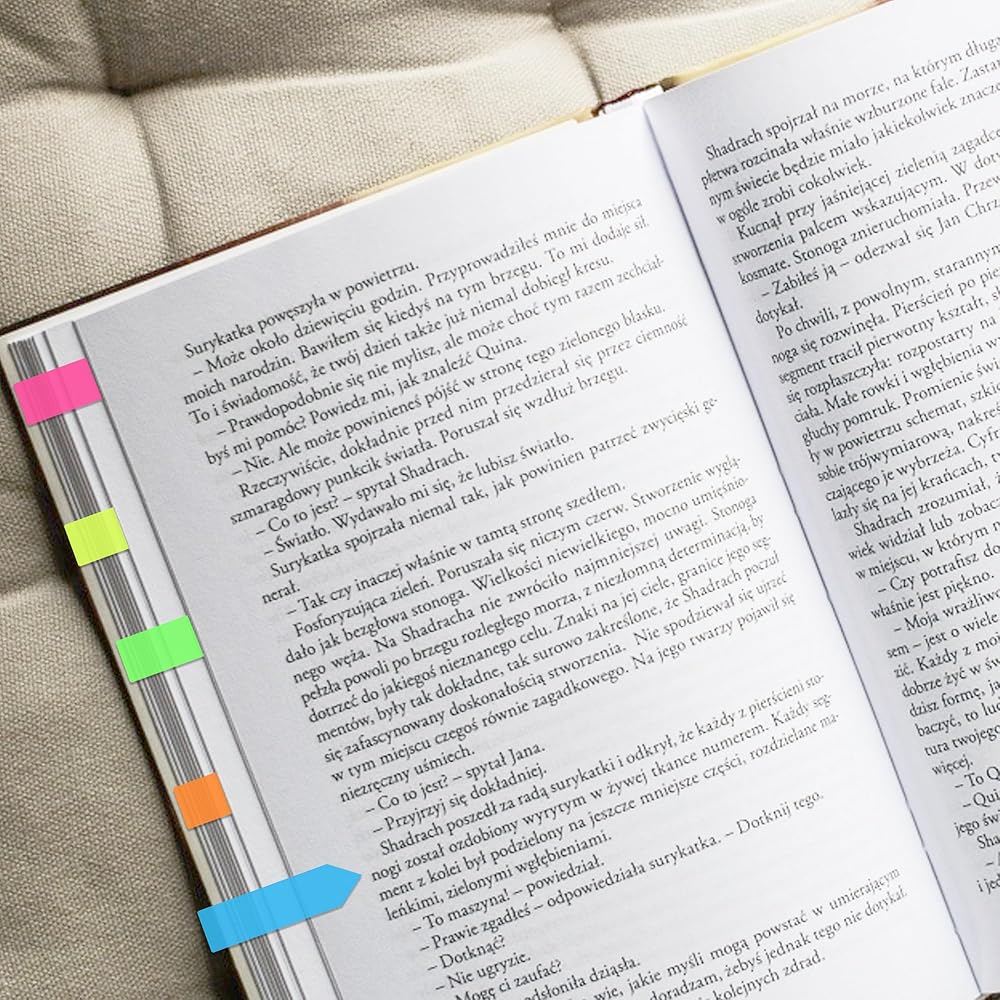 Surykatka powęszyła w powietrzu.
– Może około dziewięciu godzin. Przyprowadziłeś mnie do miejsca
moich narodzin. Bawiłem się kiedyś na tym brzegu. To mi dodaje sił.
To i świadomość, że twój dzień także już niemal dobiegł kresu.
– Prawdopodobnie się nie mylisz, ale może choć tym razem zechciał-
byś mi pomóc? Powiedz mi, jak znaleźć Quina.
– Nie. Ale może powinieneś pójść w stronę tego zielonego blasku.
Rzeczywiście, dokładnie przed nim przedzierał się przez ciemność
szmaragdowy punkcik światła. Poruszał się wzdłuż brzegu.
– Co to jest? – spytał Shadrach.
– Światło. Wydawało mi się, że lubisz światło.
Surykatka spojrzała niemal tak, jak powinien patrzeć zwycięski ge-
nerał.
– Tak czy inaczej właśnie w tamtą stronę szedłem.
Fosforyzująca zieleń. Poruszała się niczym czerw. Stworzenie wyglą-
dało jak bezgłowa stonoga. Wielkości niewielkiego, mocno umięśnio-
nego węża. Na Shadracha nie zwróciło najmniejszej uwagi. Stonoga
pełzła powoli po brzegu rozległego morza, z niezłomną determinacją, by
dotrzeć do jakiegoś nieznanego celu. Znaki na jej ciele, granice jego seg-
mentów, były tak dokładne, tak surowo zakreślone, że Shadrach poczuł
się zafascynowany doskonałością stworzenia. Nie spodziewał się ujrzeć
w tym miejscu czegoś równie zagadkowego. Na jego twarzy pojawił się
niezręczny uśmiech.
– Co to jest? – spytał Jana.
– Przyjrzyj się dokładniej.
Shadrach poszedł za radą surykatki i odkrył, że każdy z pierścieni sto-
nogi został ozdobiony wyrytym w żywej tkance numerem. Każdy seg-
ment z kolei był podzielony na jeszcze mniejsze części, rozdzielane ma-
leńkimi, zielonymi wgłębieniami.
– To maszyna! – powiedział.
– Prawie zgadłeś – odpowiedziała surykatka. – Dotknij tego.
– Dotknąć?
– Nie ugryzie.
– Mogę ci zaufać?
odsłoniła dziąsła.
wie, jakie myśli mogą powstać w umierającym
doradzam, żebyś jednak tego nie dotykał.
kolejnych zdrad.
Shadrach spojrzał na morze, na którym długa
pierwa rozcinała właśnie wzburzone fale.
nym świecie będzie miało jakiekolwiek
w ogóle zrobi cokolwiek.
Kucnął przy jaśniejącej zielenią
stworzenia palcem wskazującym. W
kosmate. Stonoga znieruchomiała.
– Zabiłeś ją – odezwał się Jan
dotykał.
Po chwili, z powolnym,
noga się rozwinęła. Pierścień po
segment tracił pierwotny kształt,
się rozpłaszczyła: rozpostarty na
ciała. Małe rowki i wgłębienia
głuchy pomruk. Promienie
ły w powietrzu schemat,
sobie trójwymiarową,
czającego je wybrzeża.
lazły się na jej krańcach,
Shadrach zrozumiał,
wiek widział lub
w miejscu, w którym
– Czy potrafisz
właśnie jest piękno.
– Moja
sem – jest o wiele
zić. Każdy z
dobrze żyć w
dzisz formę,
baczyć, to
tura twojego
więcej.
– To
– Qui
jego
Sha
i